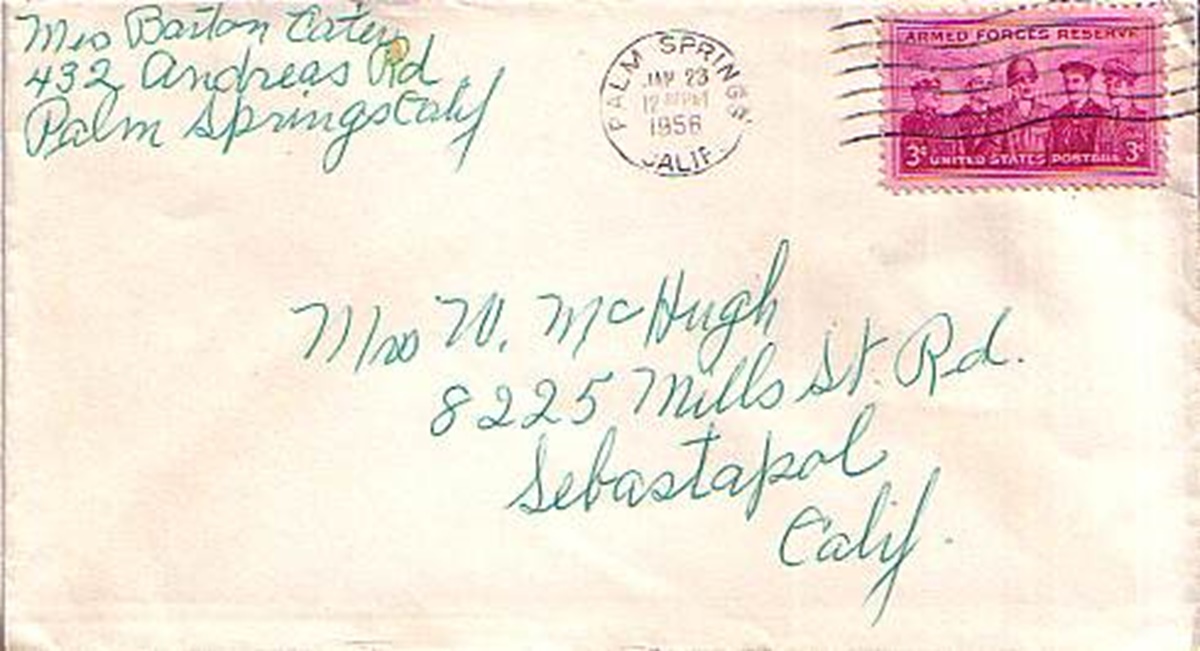 Mrs Barton Cates
432 Andreas Rd
Palm Springs Calif
PALM SPRINGS
JAN 23
1956
CALIF.
ARMED FORCES RESERVE
3¢ UNITED STATES POSTAGE 3¢
Mrs W. McHugh
8225 Mills St. Rd.
Sebastapol
Calif.